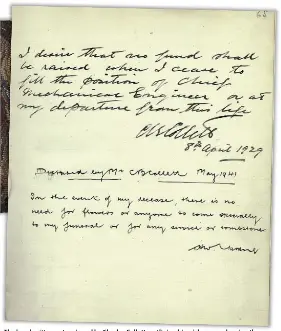 68
I desire that no fund shall
be raised when I cease to
fill the position of Chief
Mechanical Engineer or at
my departure from this life
CBCollett
8th April 1929
by Mr CB Collett May 1941
In the event of my decease, there is no
need for flowers or anyone to come officially
to my funeral or for any service or